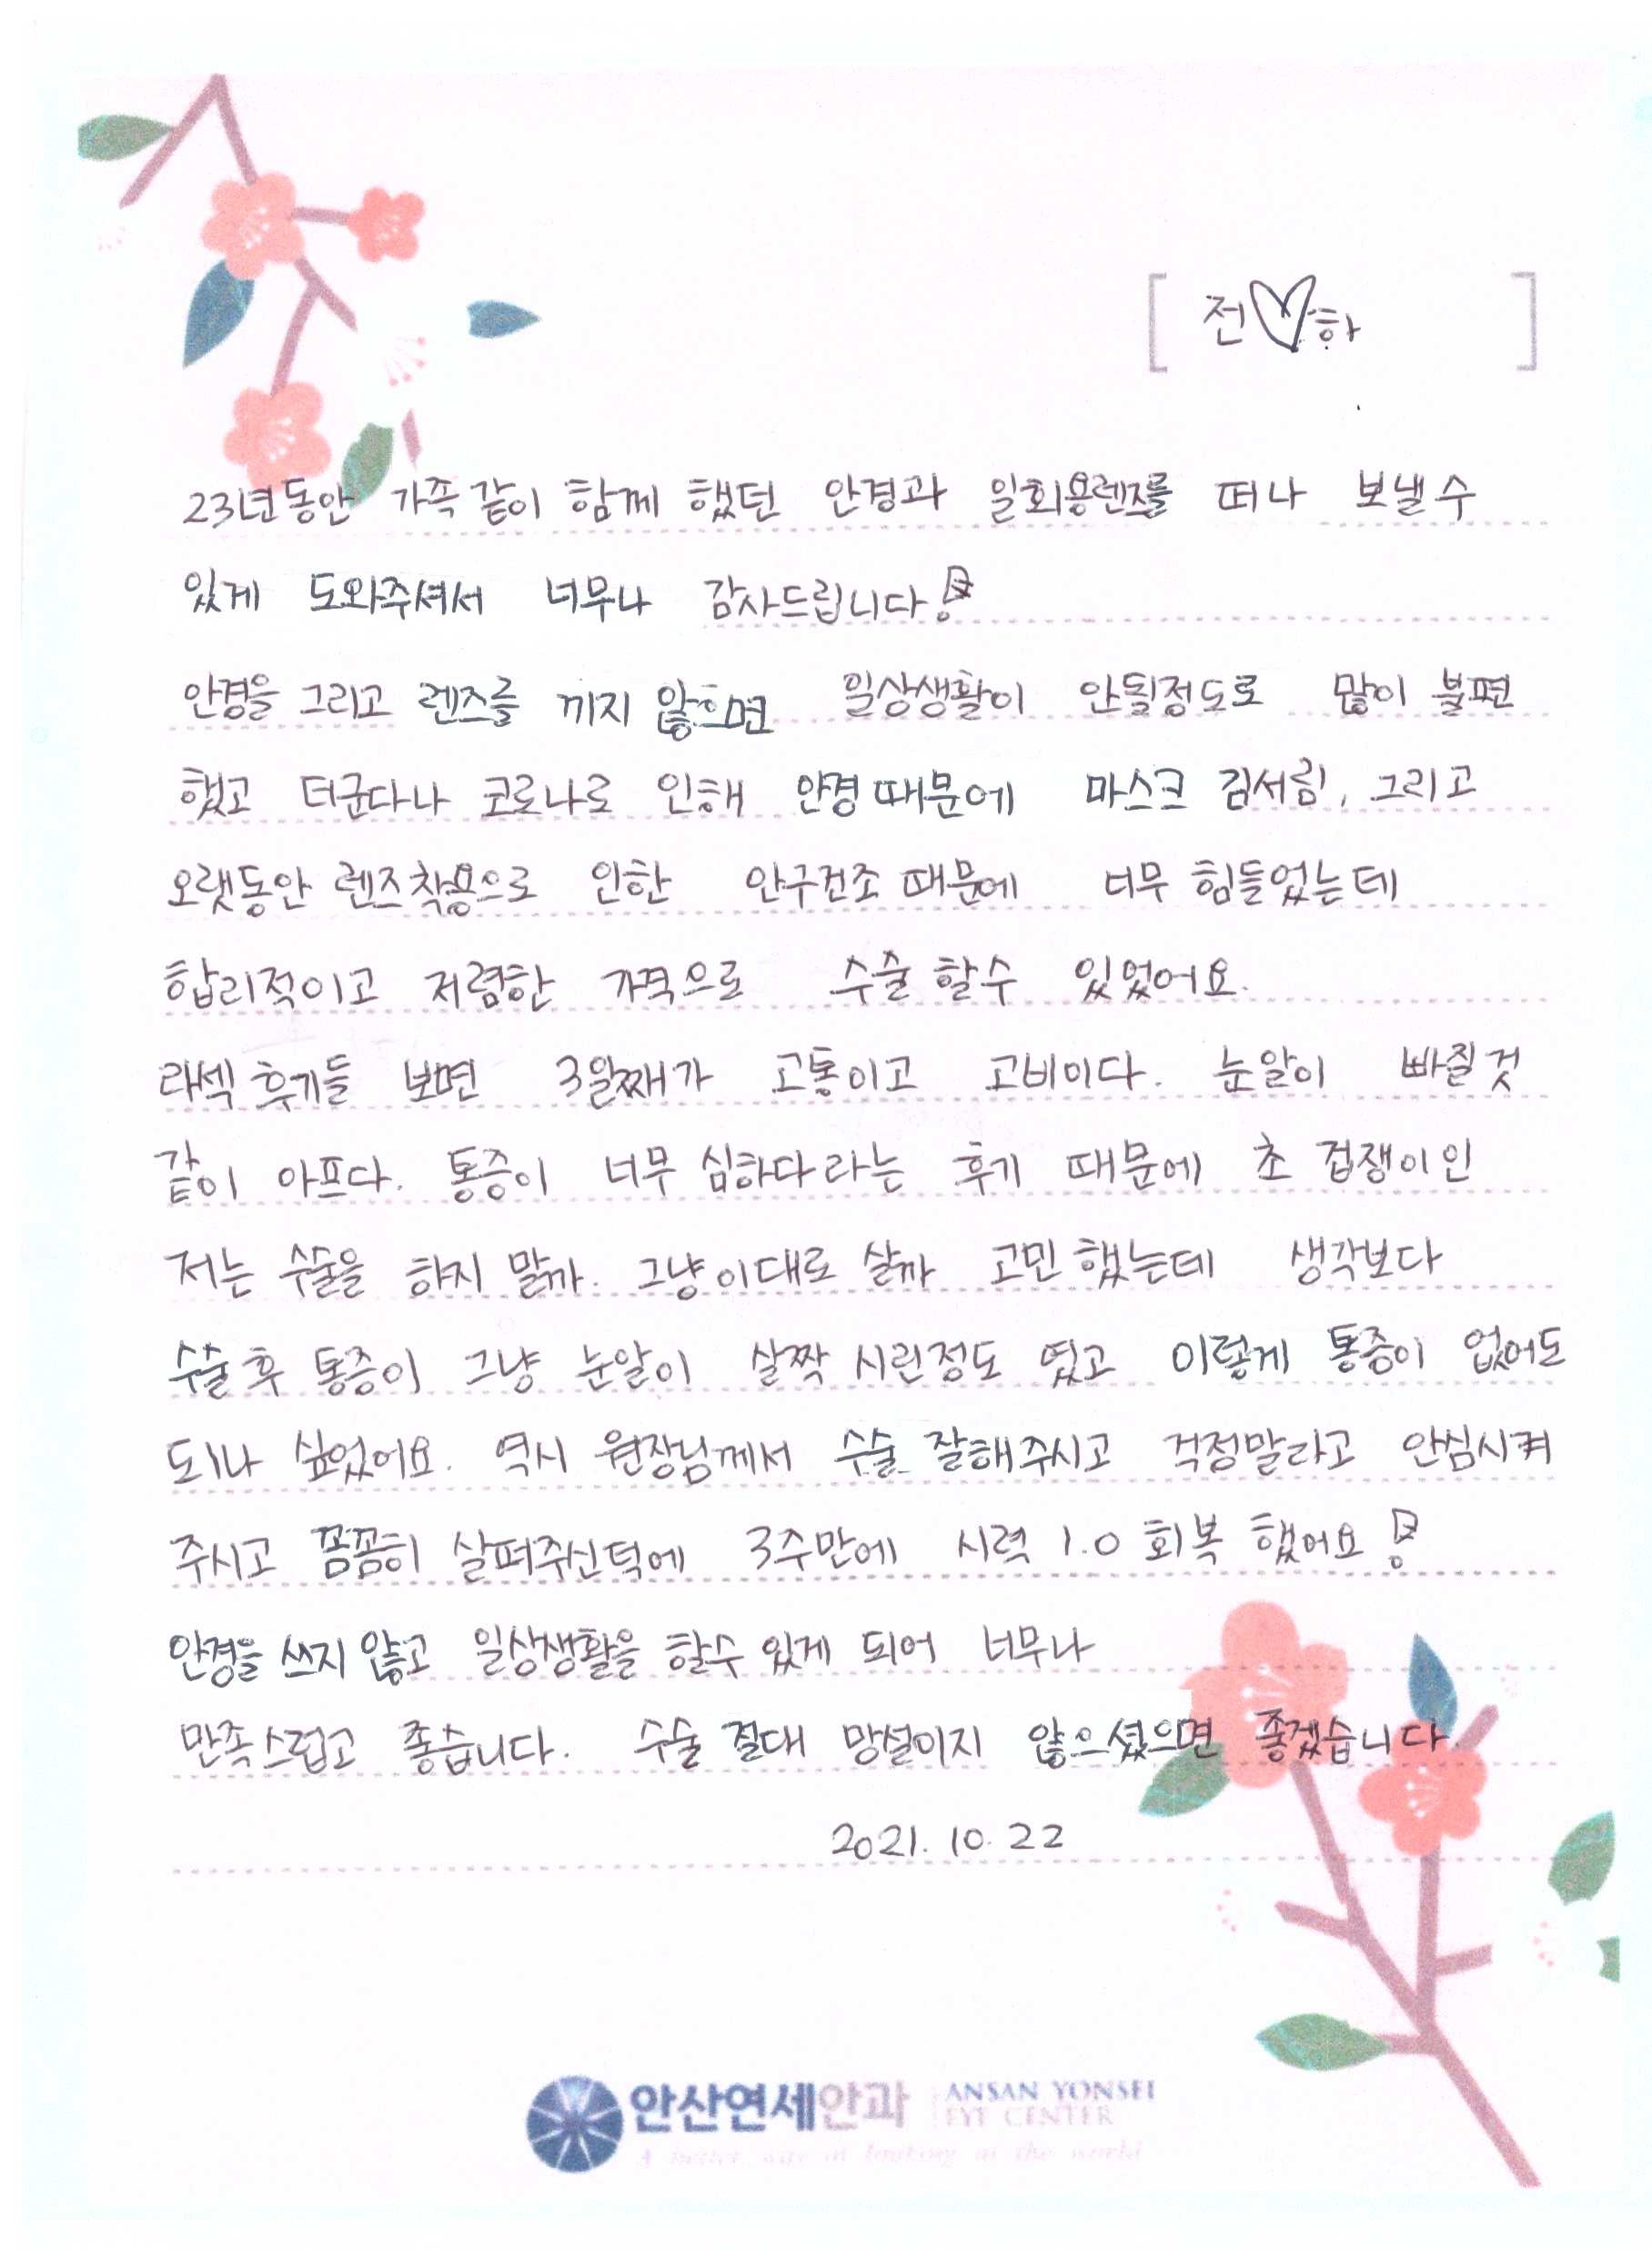 [ 전♡하 ]
23년동안 가족같이 함께 했던 안경과 일회용렌즈를 떠나 보낼수
있게 도와주셔서 너무나 감사드립니다!
안경을 그리고 렌즈를 끼지 않으면 일상생활이 안될정도로 많이 불편
했고 더군다나 코로나로 인해 안경때문에 마스크 김서림, 그리고
오랫동안 렌즈착용으로 인한 안구건조 때문에 너무 힘들었는데
합리적이고 저렴한 가격으로 수술 할수 있었어요.
라섹 후기들 보면 3일째가 고통이고 고비이다. 눈알이 빠질것
같이 아프다. 통증이 너무 심하다라는 후기 때문에 초 겁쟁이인
저는 수술을 하지 말까. 그냥이대로 살까 고민했는데 생각보다
수술후 통증이 그냥 눈알이 살짝 시린정도 였고 이렇게 통증이 없어도
되나 싶었어요. 역시 원장님께서 수술 잘해주시고 걱정말라고 안심시켜
주시고 꼼꼼히 살펴주신덕에 3주만에 시력 1.0 회복 했어요!
안경을 쓰지 않고 일상생활을 할수 있게 되어 너무나
만족스럽고 좋습니다. 수술 절대 망설이지 않으셨으면 좋겠습니다.
2021. 10. 22
안산연세안과 ANSAN YONSEI
EYE CENTER
A better way of looking at the world